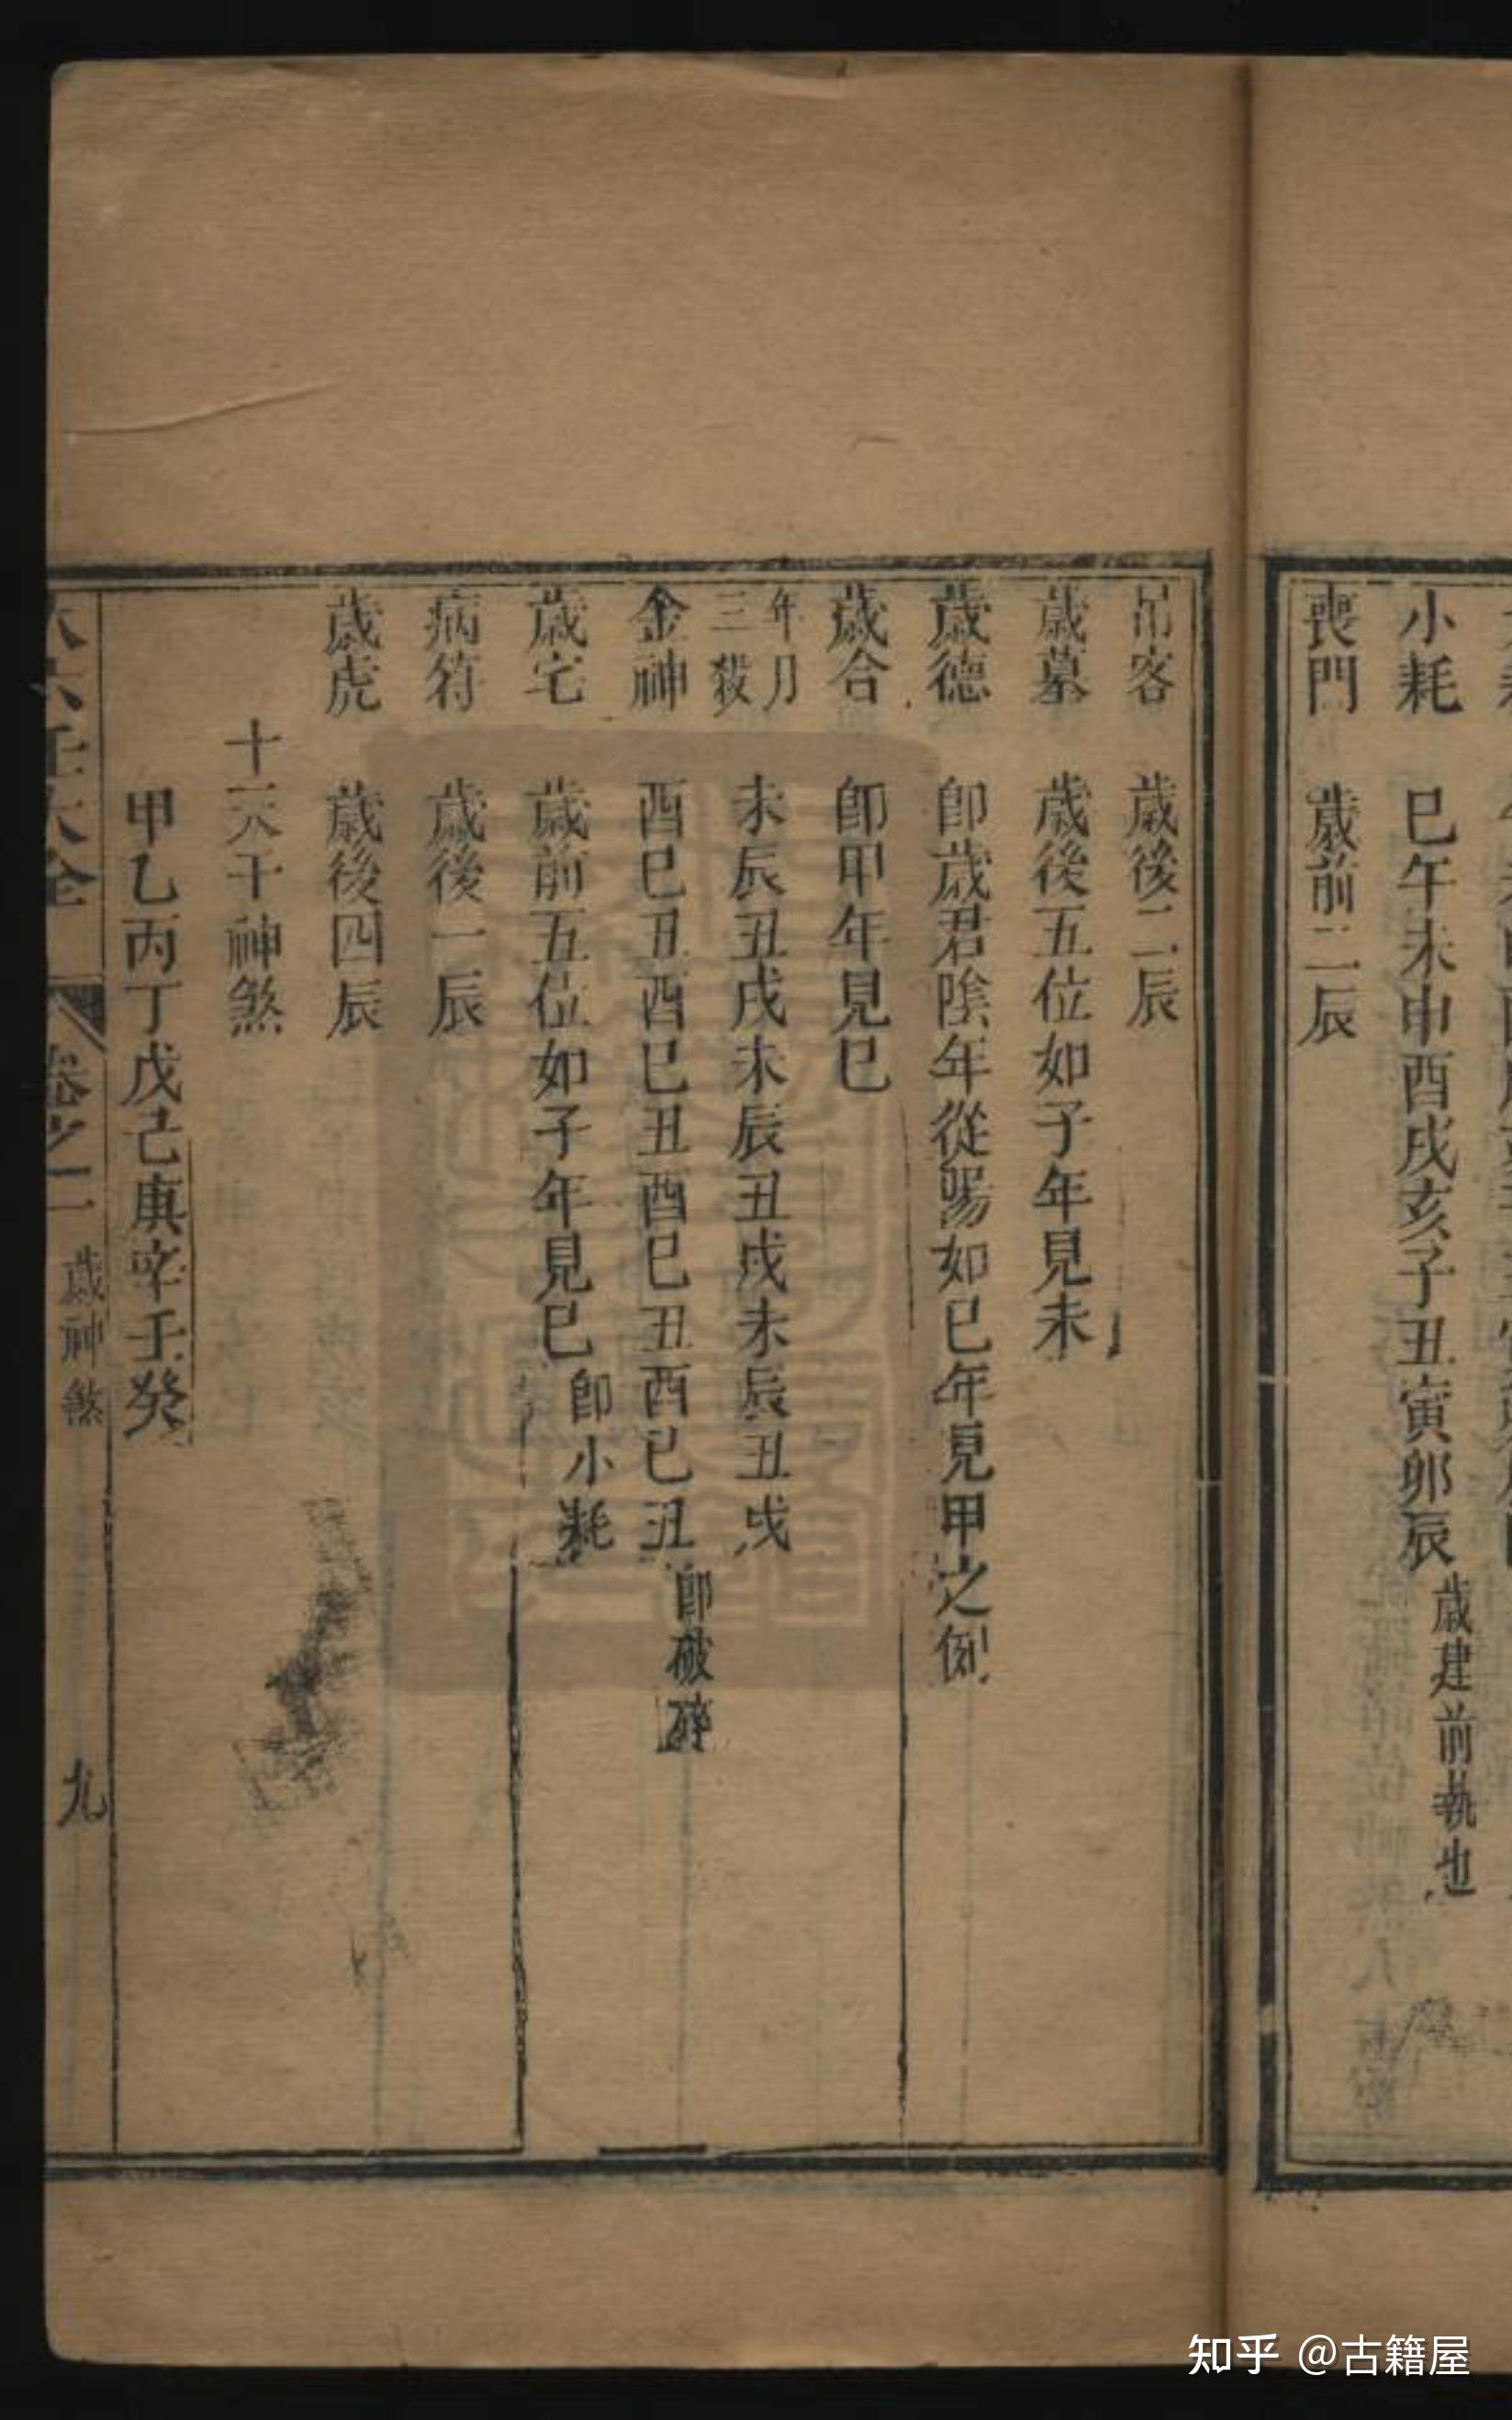 小耗 巳午未申酉戌亥子丑寅卯辰 歲建前執也
喪門 歲前二辰
吊客 歲後二辰
歲墓 歲後五位如子年見未
歲德 即歲君陰年從陽如巳年見甲之例
歲合 即甲年見巳
年月三殺 未辰丑戌未辰丑戌未辰丑戌
金神 酉巳丑酉巳丑酉巳丑酉巳丑 即破碎
歲宅 歲前五位如子年見巳 即小耗
病符 歲後一辰
歲虎 歲後四辰
十天干神煞
甲乙丙丁戊己庚辛壬癸
六壬大全 卷之一 歲神煞 九
知乎 @古籍屋